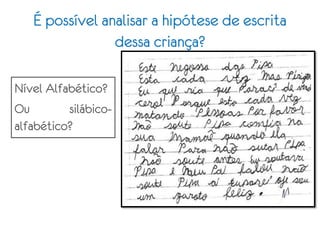 É possível analisar a hipótese de escrita
dessa criança?
Nível Alfabético?
Ou silábico-
alfabético?
Este negosso das Pipa
Esta cada vez mas Piriga
Eu qui ria que Paraci de
cerol Porque esta cada vez
matando Pessoas Por favor
não soute Pipa comfia na
sua Mamãe quando ela
falar Para não sutar Pipa
não soute antes eu soutava
Pipa e Meu Pai falou não
soute Pipa a oje seu
um garoto feliz.